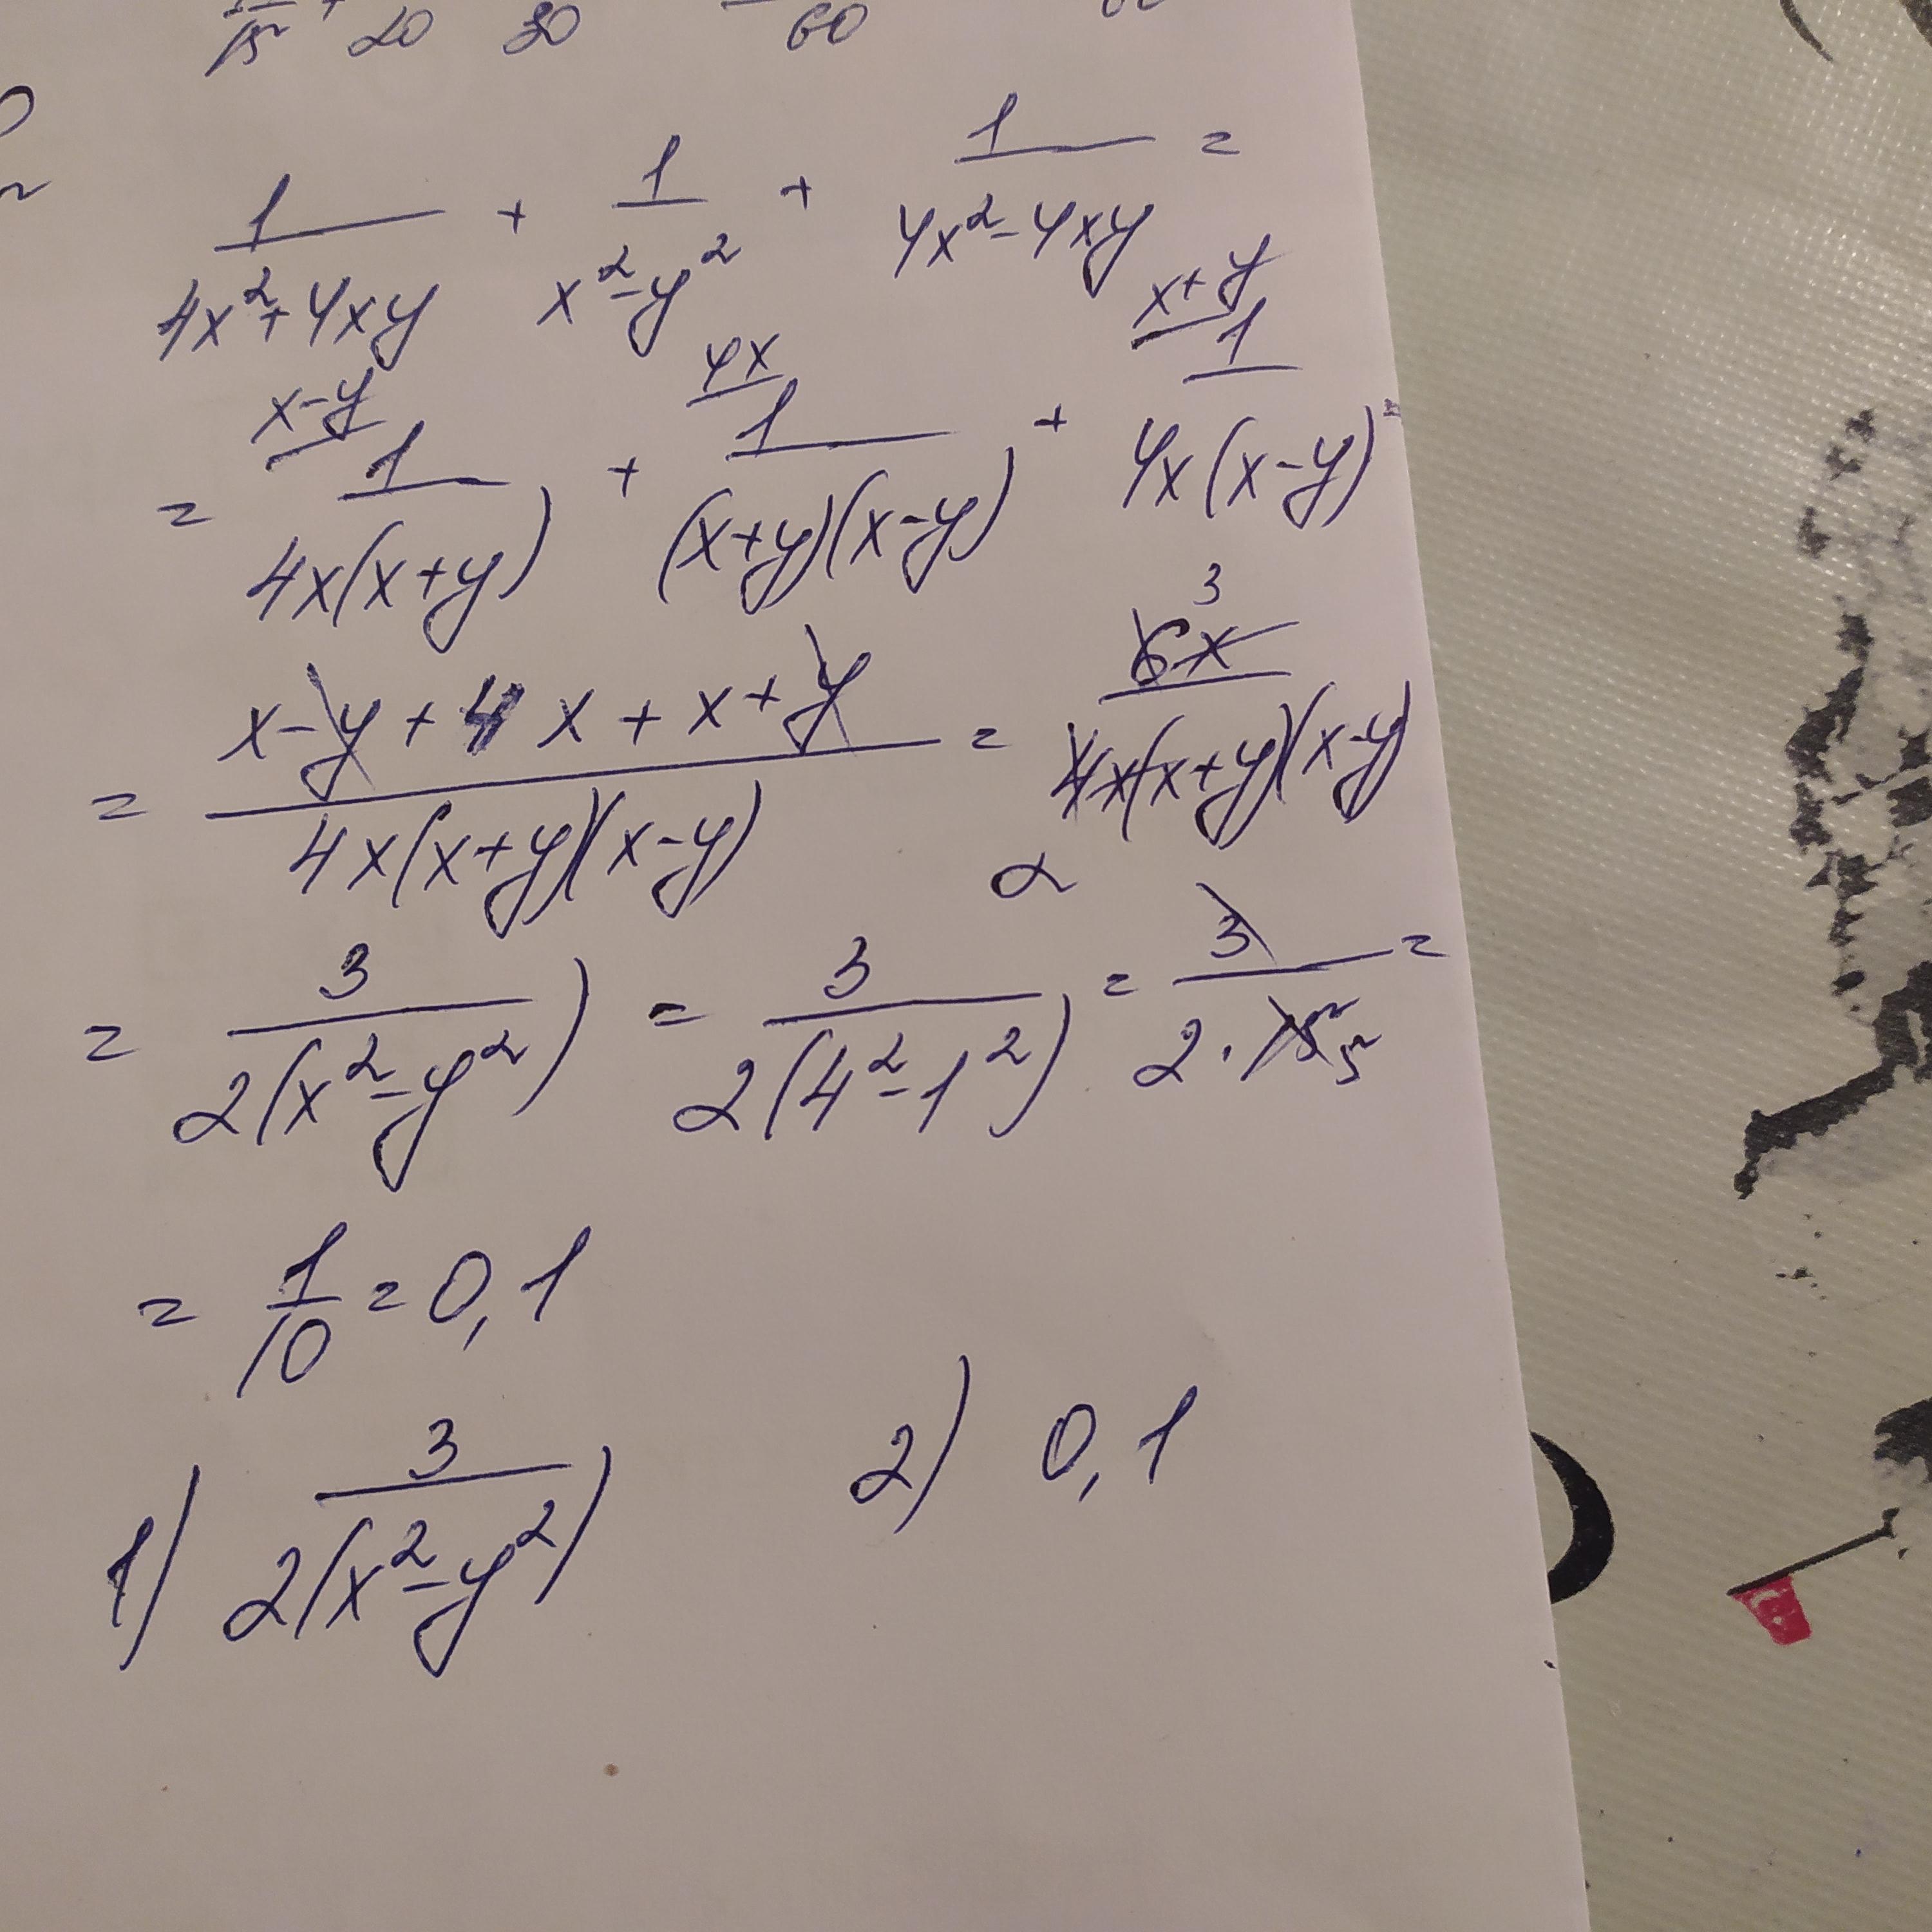 15 20 30 60
1/(4x²+4xy) + 1/(x²-y²) + 1/(4x²-4xy) =
= (x-y) 1/(4x(x+y)) + (4x) 1/((x+y)(x-y)) + (x+y) 1/(4x(x-y)) =
= (x-y+4x+x+y)/(4x(x+y)(x-y)) = 3 6x/(4x(x+y)(x-y)) 2
= 3/(2(x²-y²)) = 3/(2(4²-1²)) = 3/(2·15) 5 =
= 1/10 = 0,1
1) 3/(2(x²-y²)) 2) 0,1